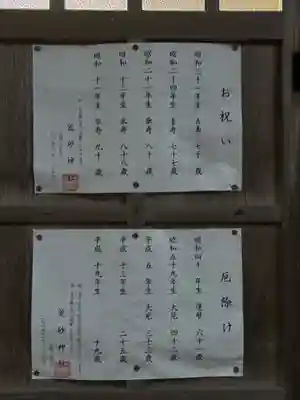 お祝い
昭和三十一年生 古希 七十歳
昭和二十四年生 喜寿 七十七歳
昭和二十一年生 傘寿 八十歳
昭和 十三年生 米寿 八十八歳
昭和 十一年生 卒寿 九十歳
神社
厄除け
昭和四十 年生 還暦 六十一歳
昭和五十九年生 大厄 四十二歳
平成 五 年生 大厄 三十三歳
平成 十三年生 二十五歳
平成 十九年生 十九歳
神社